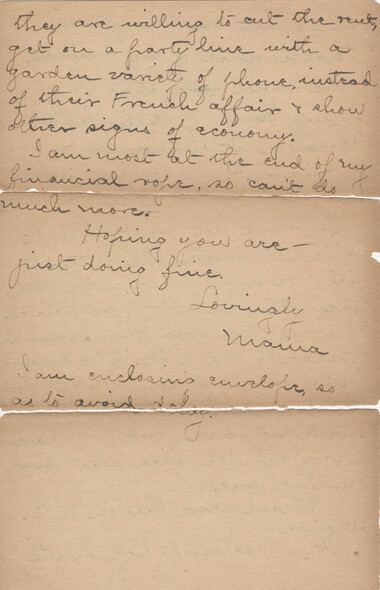 they are willing to cut the rent,
get on a party line with a
garden variety of phone, instead
of their French affair & show
other signs of economy.
I am most at the end of my
financial rope, so can't do
much more.
Hoping you are —
just doing fine.
Lovingly
Mama
I am enclosing envelope, so
as to avoid delay.